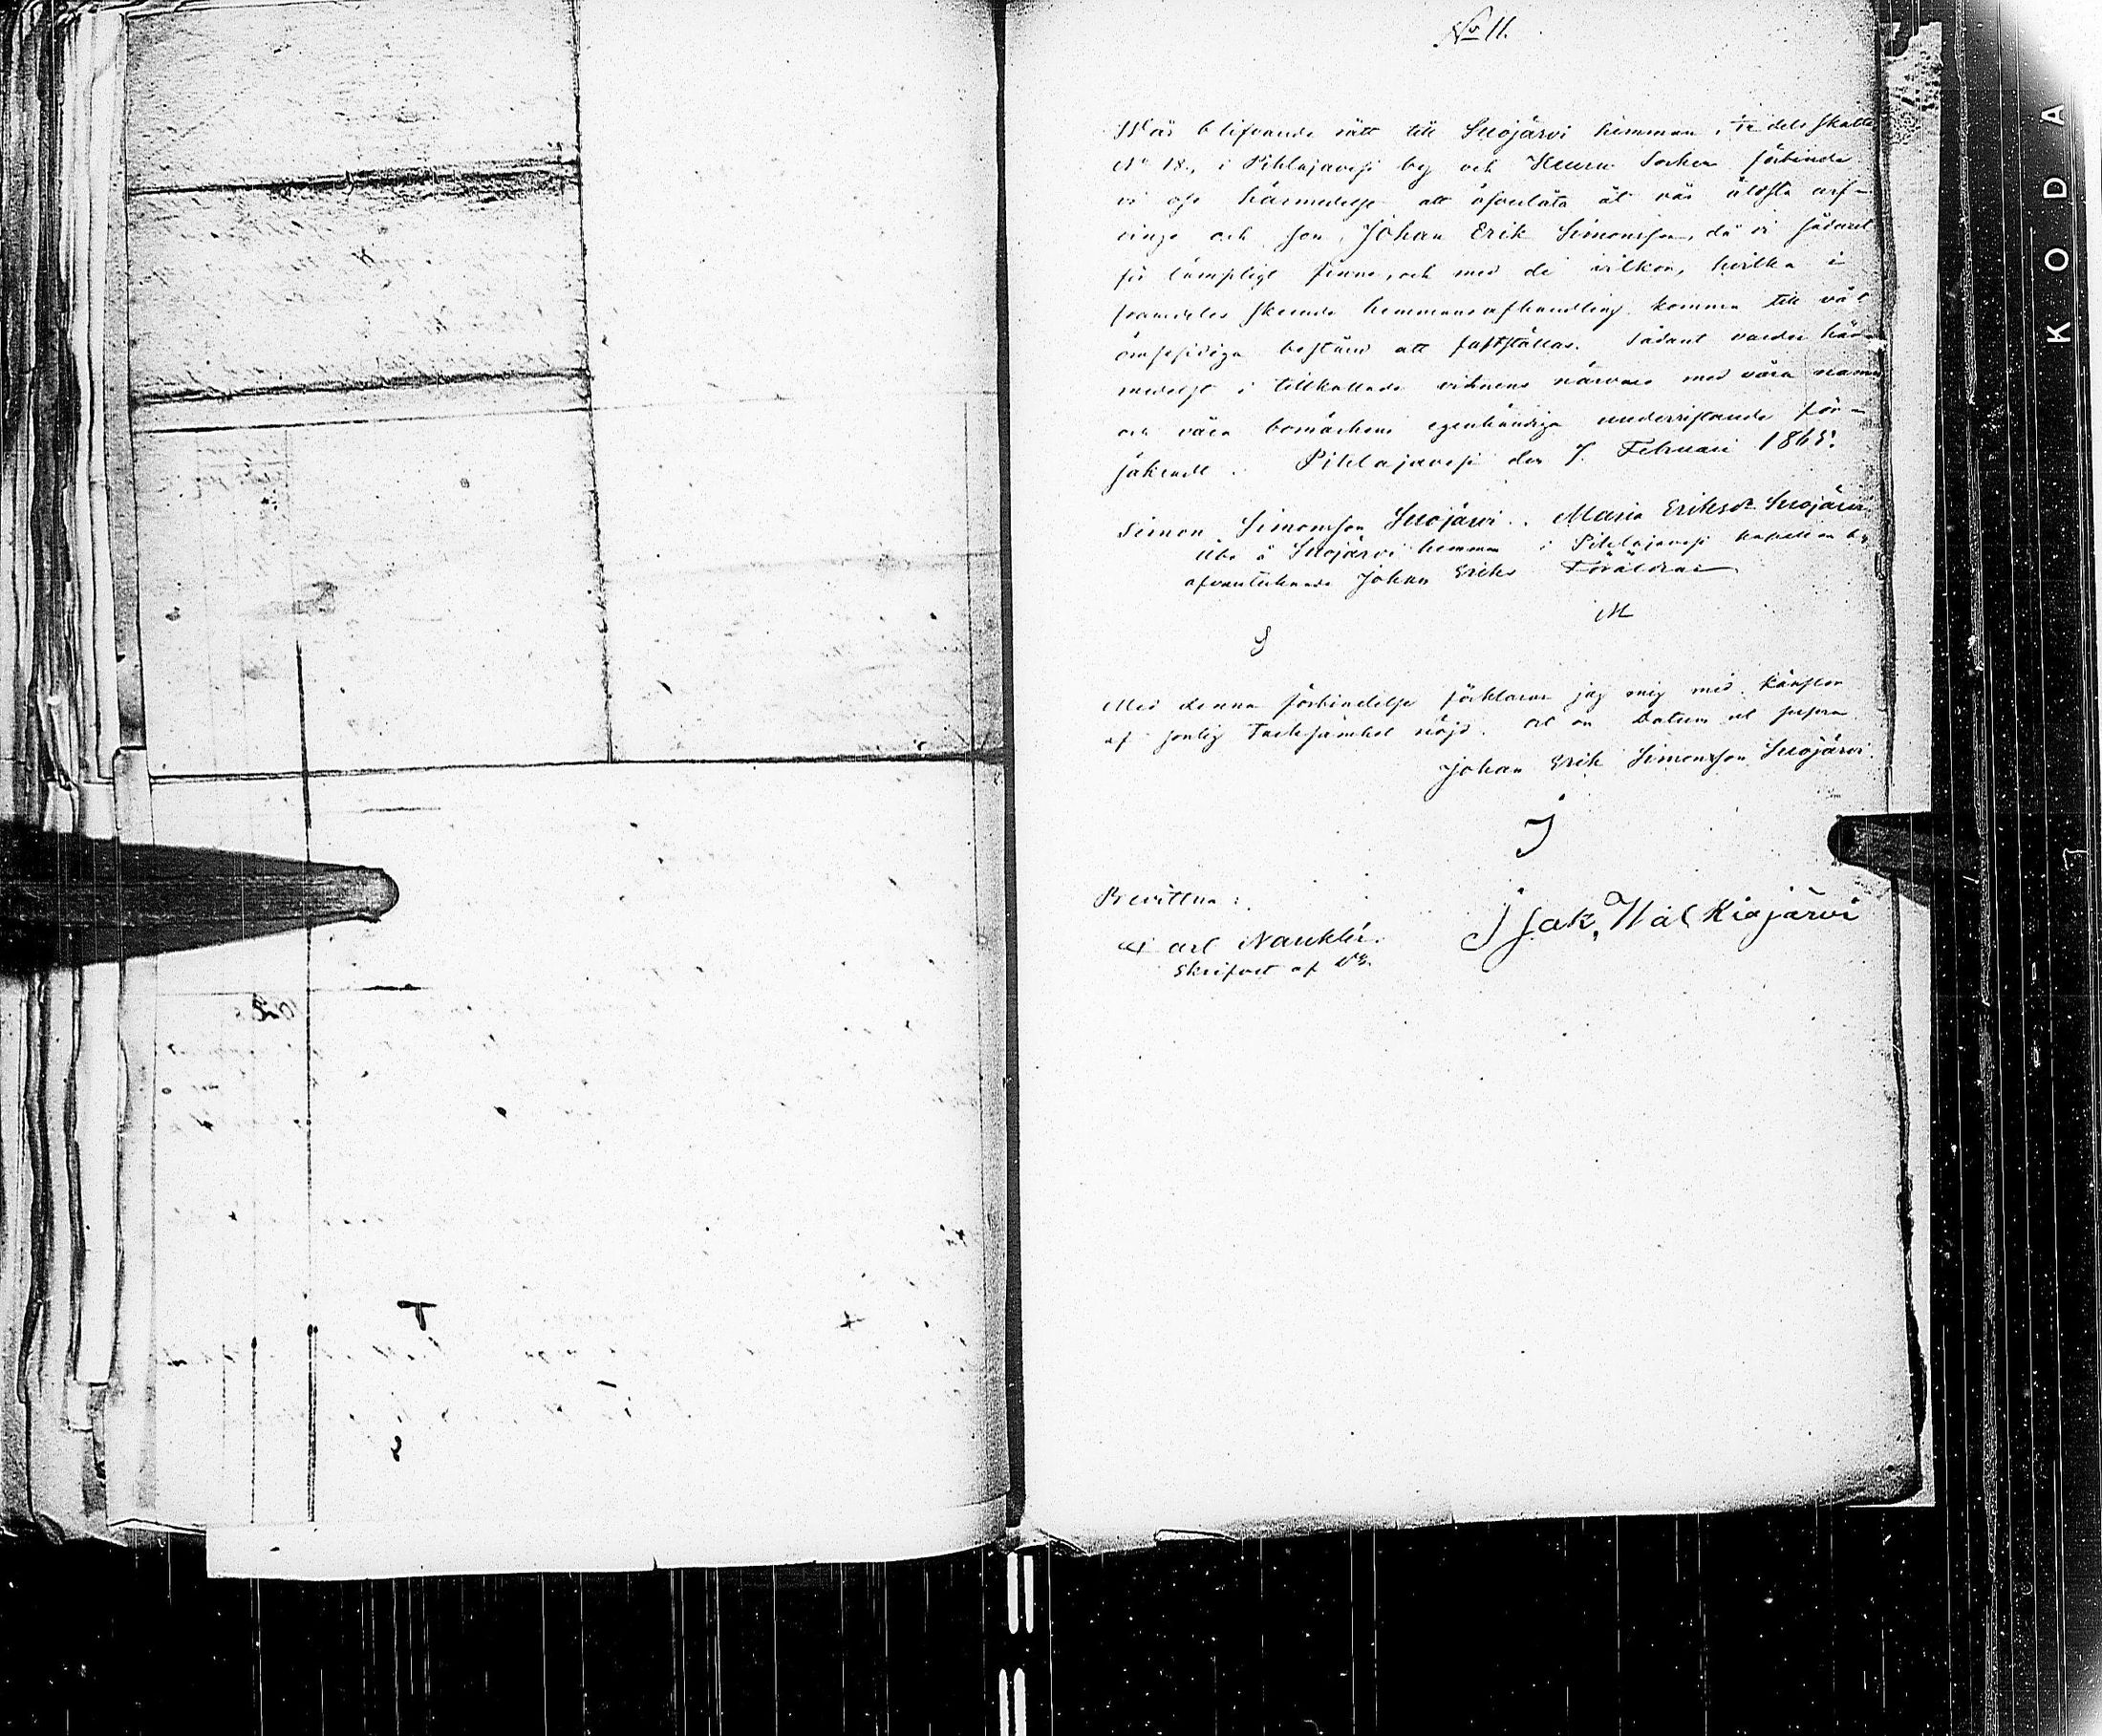 No 11.
Wår blifvande rätt till Suojärvi hemman, 1/12 dels skatte
No 18., i Pihlajavesi by och Keuru Socken förbinde
vi oss härmedelst att öfverlåta åt vår äldsta arf-
vinge och son, Johan Erik Simonsson, då vi sådant
för lämpligt finne, och med de vilkor, hvilka i
framdeles skeende hemmansafhandling komma till vårt
ömsesidiga bestånd att fastställas. Sådant varder här-
medelst i tillkallade vittnens närvaro med våra namn
och våra bomärkens egenhändiga underristande för-
säkradt. Pihlajavesi den 7. Februari 1865.
Simon Simonsson Suojärvi. Maria Eriksdr Suojärvi
Åbo å Suojärvi hemman i Pihlajavesi kapell
ofvantecknade Johan Eriks Föräldrar
S M
Med denna förbindelse förklarar jag mig med känslor
af sonlig Tacksamhet nöjd. Ort och Datum ut supra
Johan Erik Simonsson Suojärvi.
I
Bevittna:
Carl Nauklér. Isak Walkiajärvi
Skrifvet af Ds.
KODA